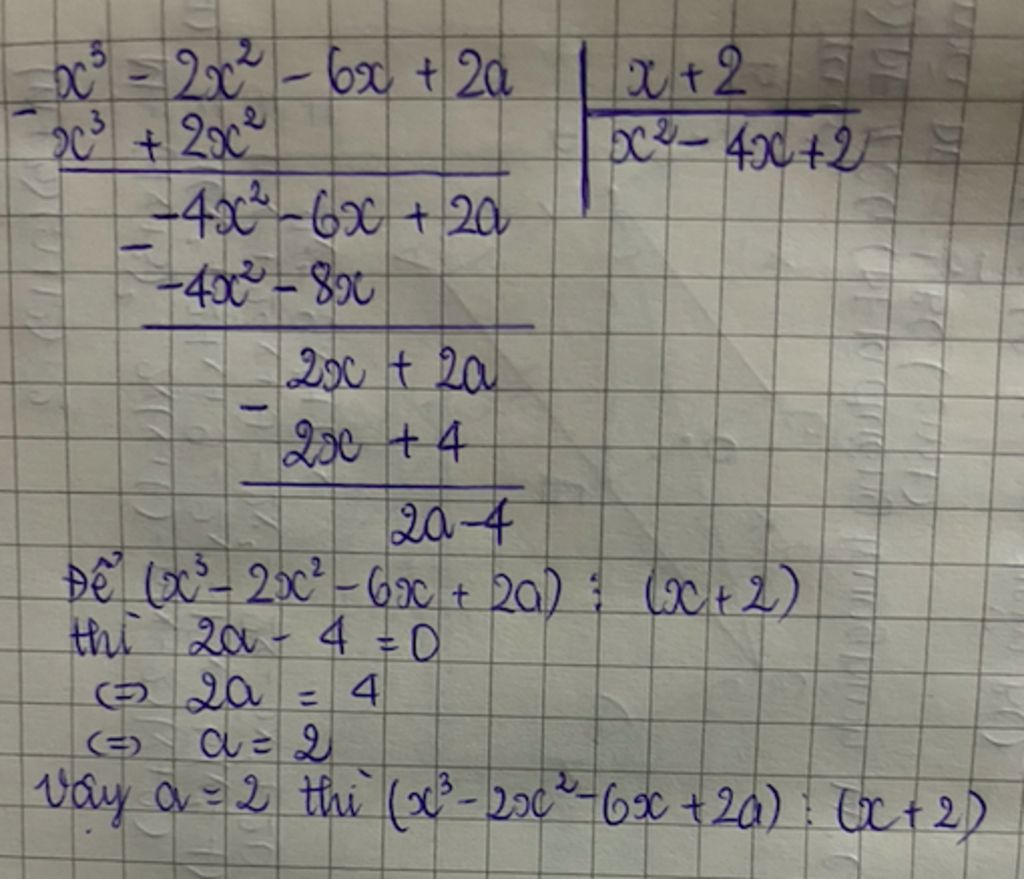 x³ - 2x² - 6x + 2a | x + 2
- x³ + 2x² | x² - 4x + 2
-4x² - 6x + 2a
- -4x² - 8x
2x + 2a
- 2x + 4
2a - 4
Để (x³ - 2x² - 6x + 2a) ⋮ (x + 2)
thì 2a - 4 = 0
<=> 2a = 4
<=> a = 2
Vậy a = 2 thì (x³ - 2x² - 6x + 2a) ⋮ (x + 2)